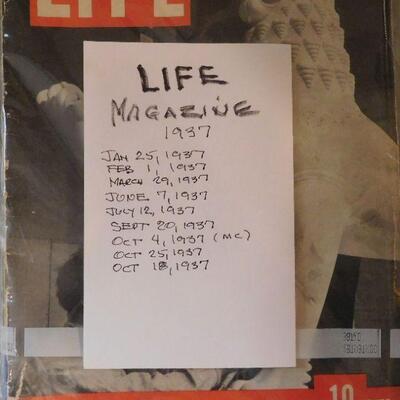 LIFE
LIFE
MAGAZINE
1937
JAN 25, 1937
FEB 1, 1937
MARCH 29, 1937
JUNE 7, 1937
JULY 12, 1937
SEPT 20, 1937
OCT 4, 1937 (MC)
OCT 25, 1937
OCT 18, 1937
10